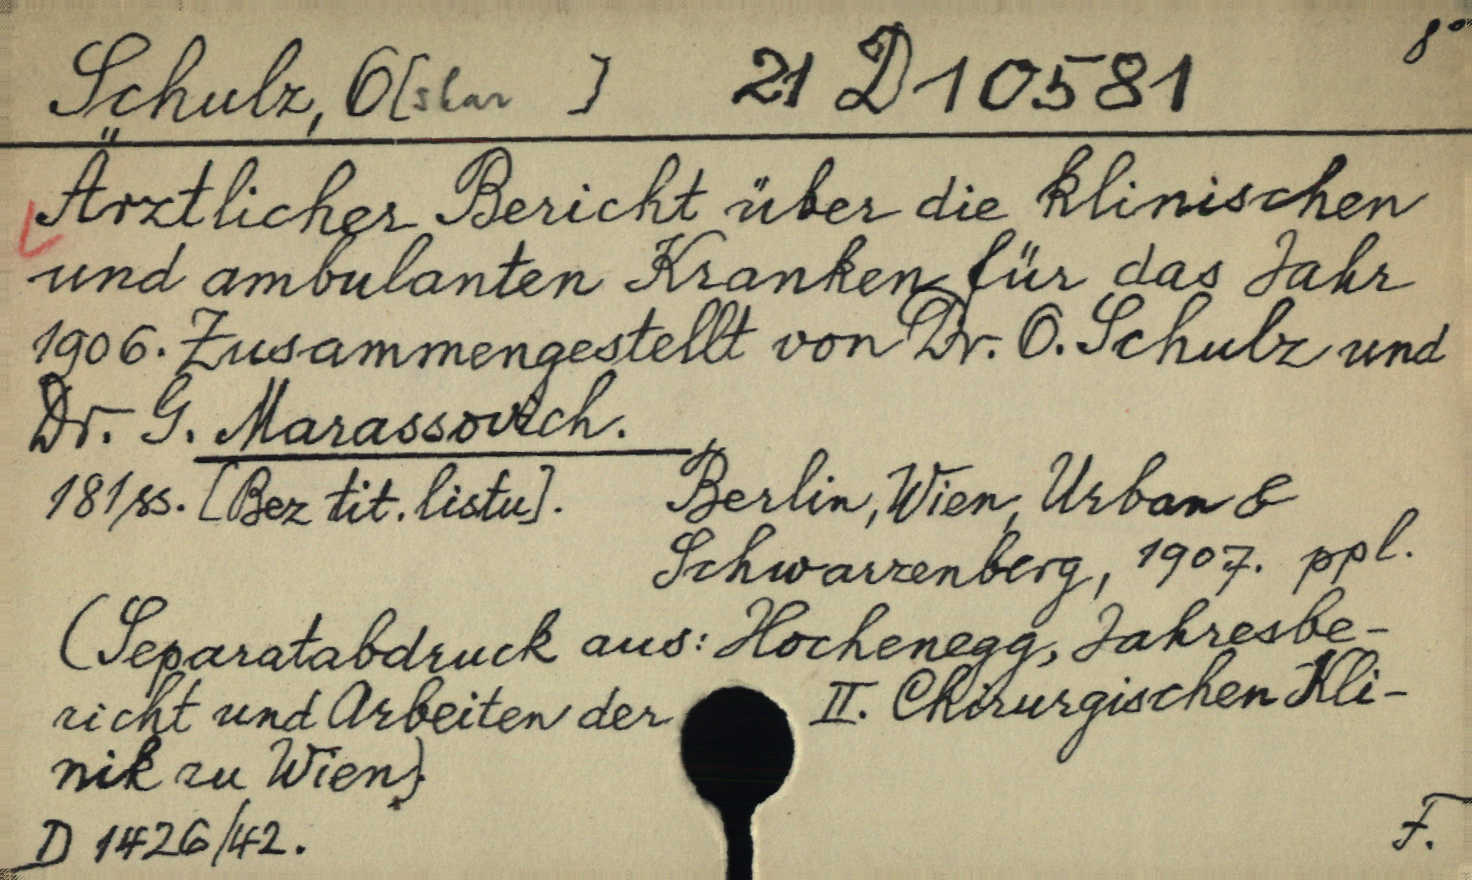 Schulz, O[skar ] 21 D 10581 8°
Ärztlicher Bericht über die klinischen
und ambulanten Kranken für das Jahr
1906. Zusammengestellt von Dr. O. Schulz und
Dr. G. Marassovich.
181, ss. [Bez tit. listu]. Berlin, Wien, Urban &
Schwarzenberg, 1907. ppl.
(Separatabdruck aus: Hochenegg, Jahresbe-
richt und Arbeiten der II. Chirurgischen Kli-
nik zu Wien)
D 1426/42. F.